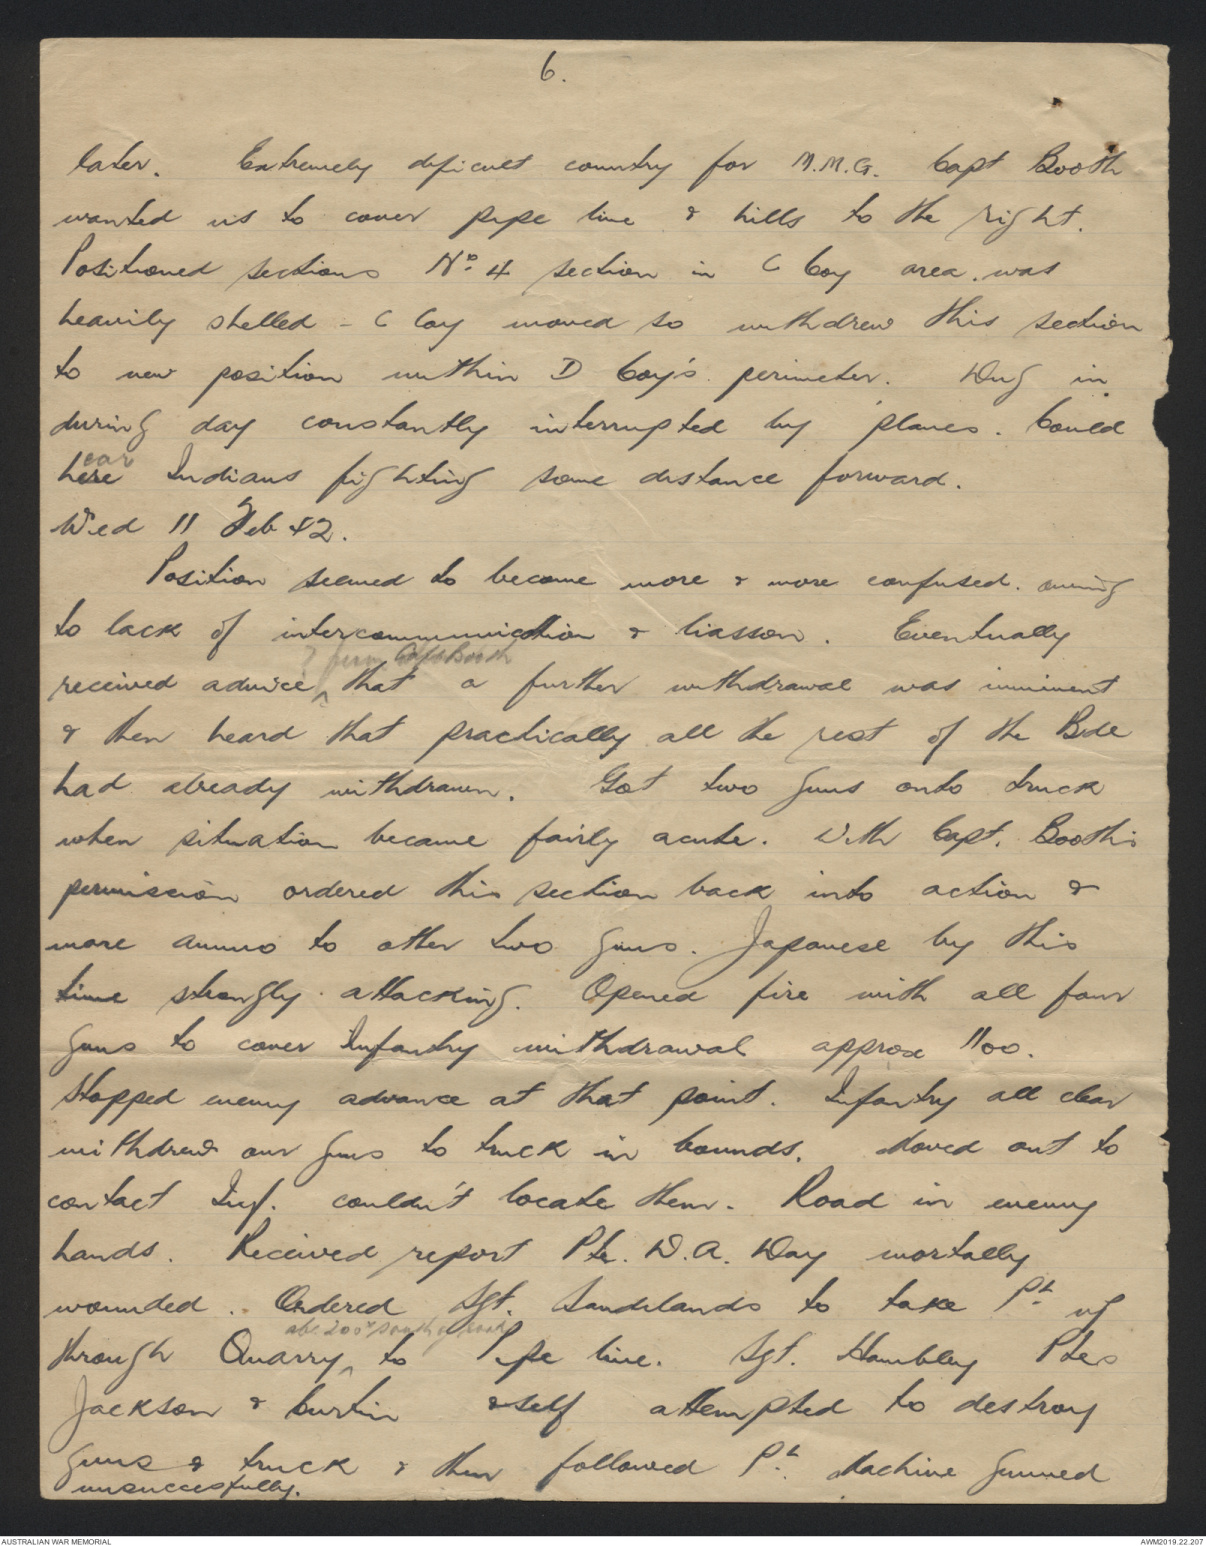 6.
later. Extremely dificult country for M.M.G. Capt Booth
wanted us to cover pipe line & hills to the right.
Positioned sections No. 4 section in C Coy area. was
heavily shelled - C Coy moved so withdrew this section
to new position within D Coy's perimeter. Dug in
during day constantly interrupted by planes. Could
here ear Indians fighting some distance forward.
Wed 11 Feb 42.
Position seemed to become more & more confused. owing
to lack of intercommunication & liasson. Eventually
? from Capt Booth
received advice, that a further withdrawal was imminent
& then heard that practically all the rest of the Bde
had already withdrawn. Got two guns onto truck
when situation became fairly acute. With Capt. Booth's
permission ordered this section back into action &
more ammo to other two guns. Japanese by this
time strongly attacking. Opened fire with all four
guns to cover Infantry withdrawal approx 1100.
Stopped enemy advance at that point. Infantry all clear
withdrew our guns to truck in bounds. Moved out to
contact Inf. couldn't locate them. Road in enemy
hands. Received report Pte. D.A. Day mortally
wounded. Ordered Sgt. Sandilands to take Pl. up
abt 200x south of road
through Quarry, to Pipe line. Sgt. Hambley Ptes
Jackson & Curtin & self attempted to destroy
guns & truck & then followed Pl. Machine gunned
unsuccessfully.
AUSTRALIAN WAR MEMORIAL
AWM2019.22.207